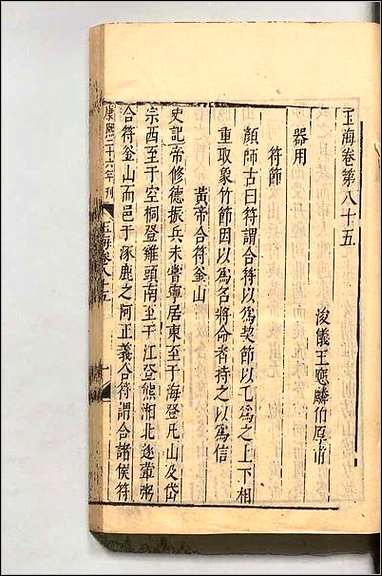 玉海卷第八十五
浚儀王應麟伯厚甫
器用
符節
顏師古曰符謂合符以為契節以毛為之上下相
重取象竹節因以為名將命者持之以為信
黃帝合符釜山
史記帝修德振兵未嘗寧居東至于海登凡山及岱
宗西至于空桐登雞頭南至于江登熊湘北逐葷粥
合符釜山而邑于涿鹿之阿正義合符謂合諸侯符
康熙二十六年刊
玉海卷八十五
一